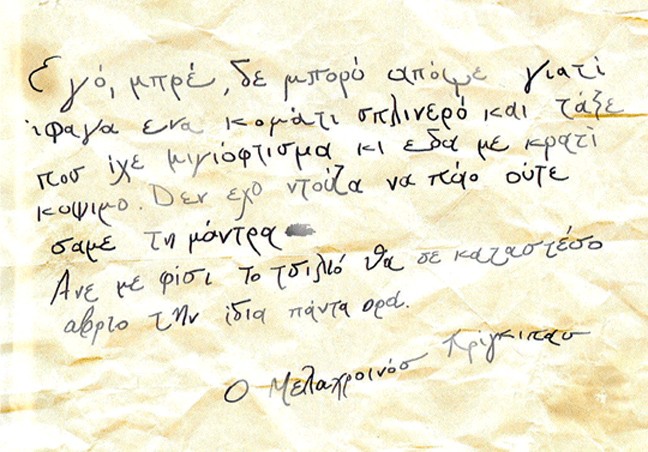 Εγό, μπρέ, δε μπορύ απόψε γιατί
ίφαγα ενα κομάτι σπλινερό και τάξε
που ίχε μιγιόφτισμα κι εδα με κρατί
κοψιμο. Δεν εχο ντούζα να πάο ούτε
σαμε τη μάντρα
Ανε με φίσι το τσιλιό θα σε καταστέσο
αβριο την ίδια πάντα ορά.
Ο Μελαχροινόσ Κρίγκιπασ